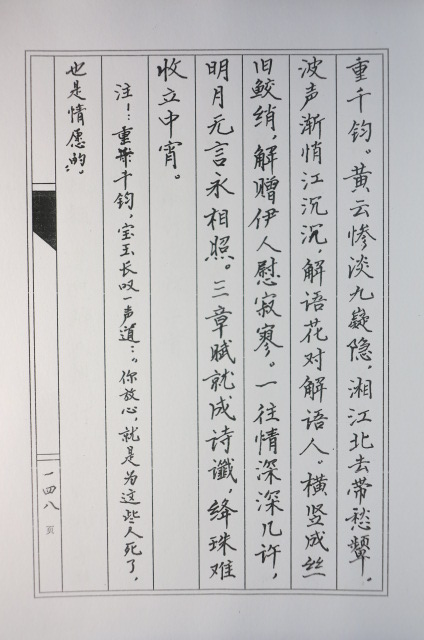 重千钧。黄云惨淡九嶷隐，湘江北去带愁颦。
波声渐悄江沉沉，解语花对解语人。横竖成丝
旧鲛绡，解赠伊人慰寂寥。一往情深深几许，
明月无言永相照。三章赋就成诗谶，绛珠难
收立中宵。
注1：重千钧，宝玉长叹一声道：“你放心，就是为这些人死了，
也是情愿的。
一四八
页